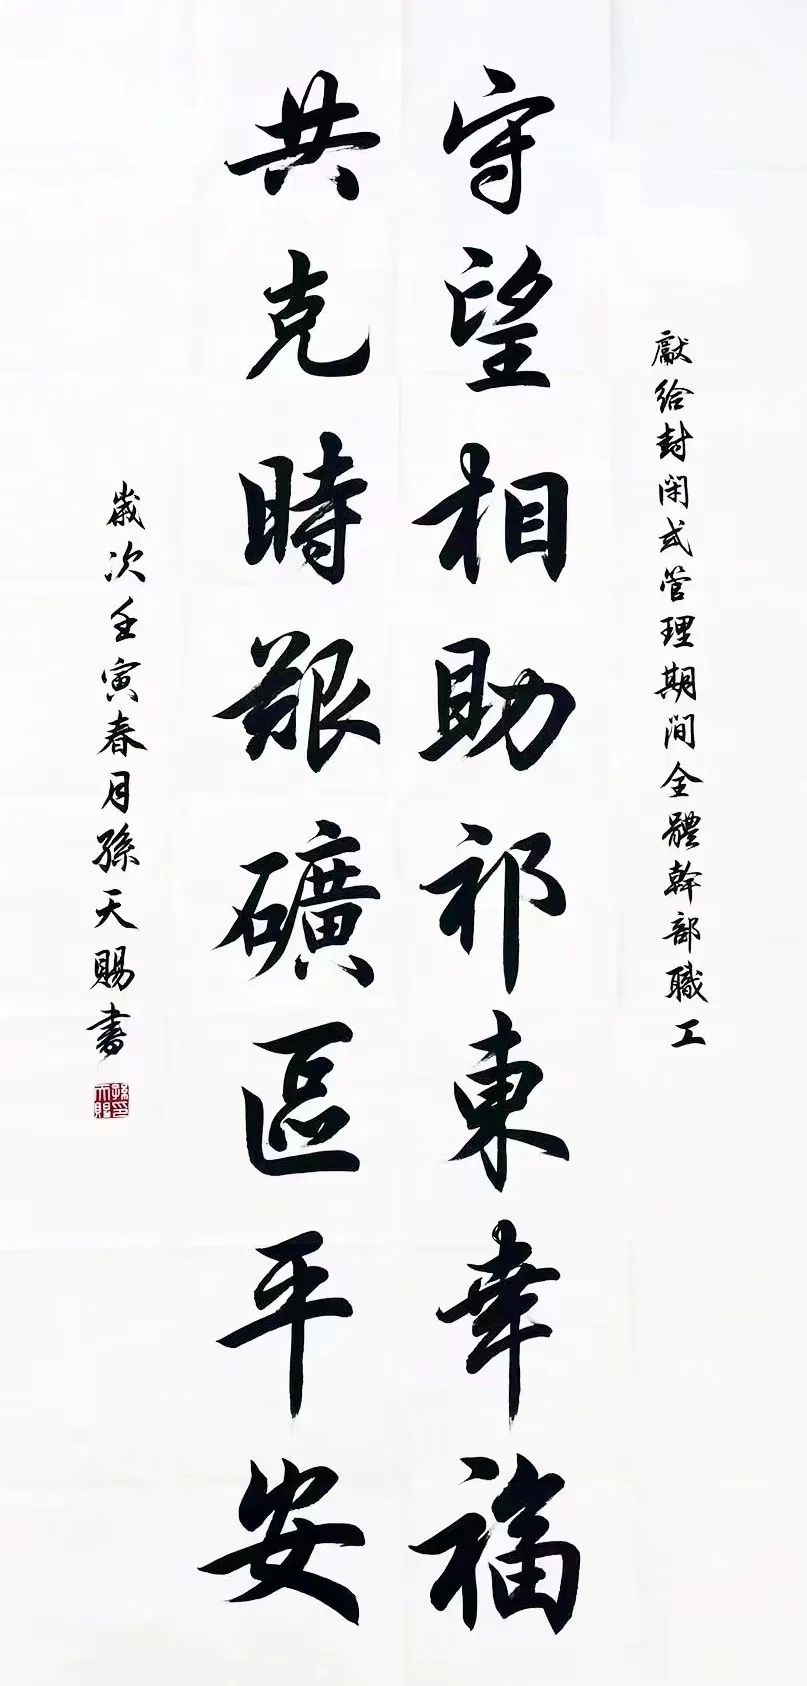 獻給封閉式管理期間全體幹部職工
守望相助祁東幸福
共克時艱礦區平安
歲次壬寅春月孫天賜書